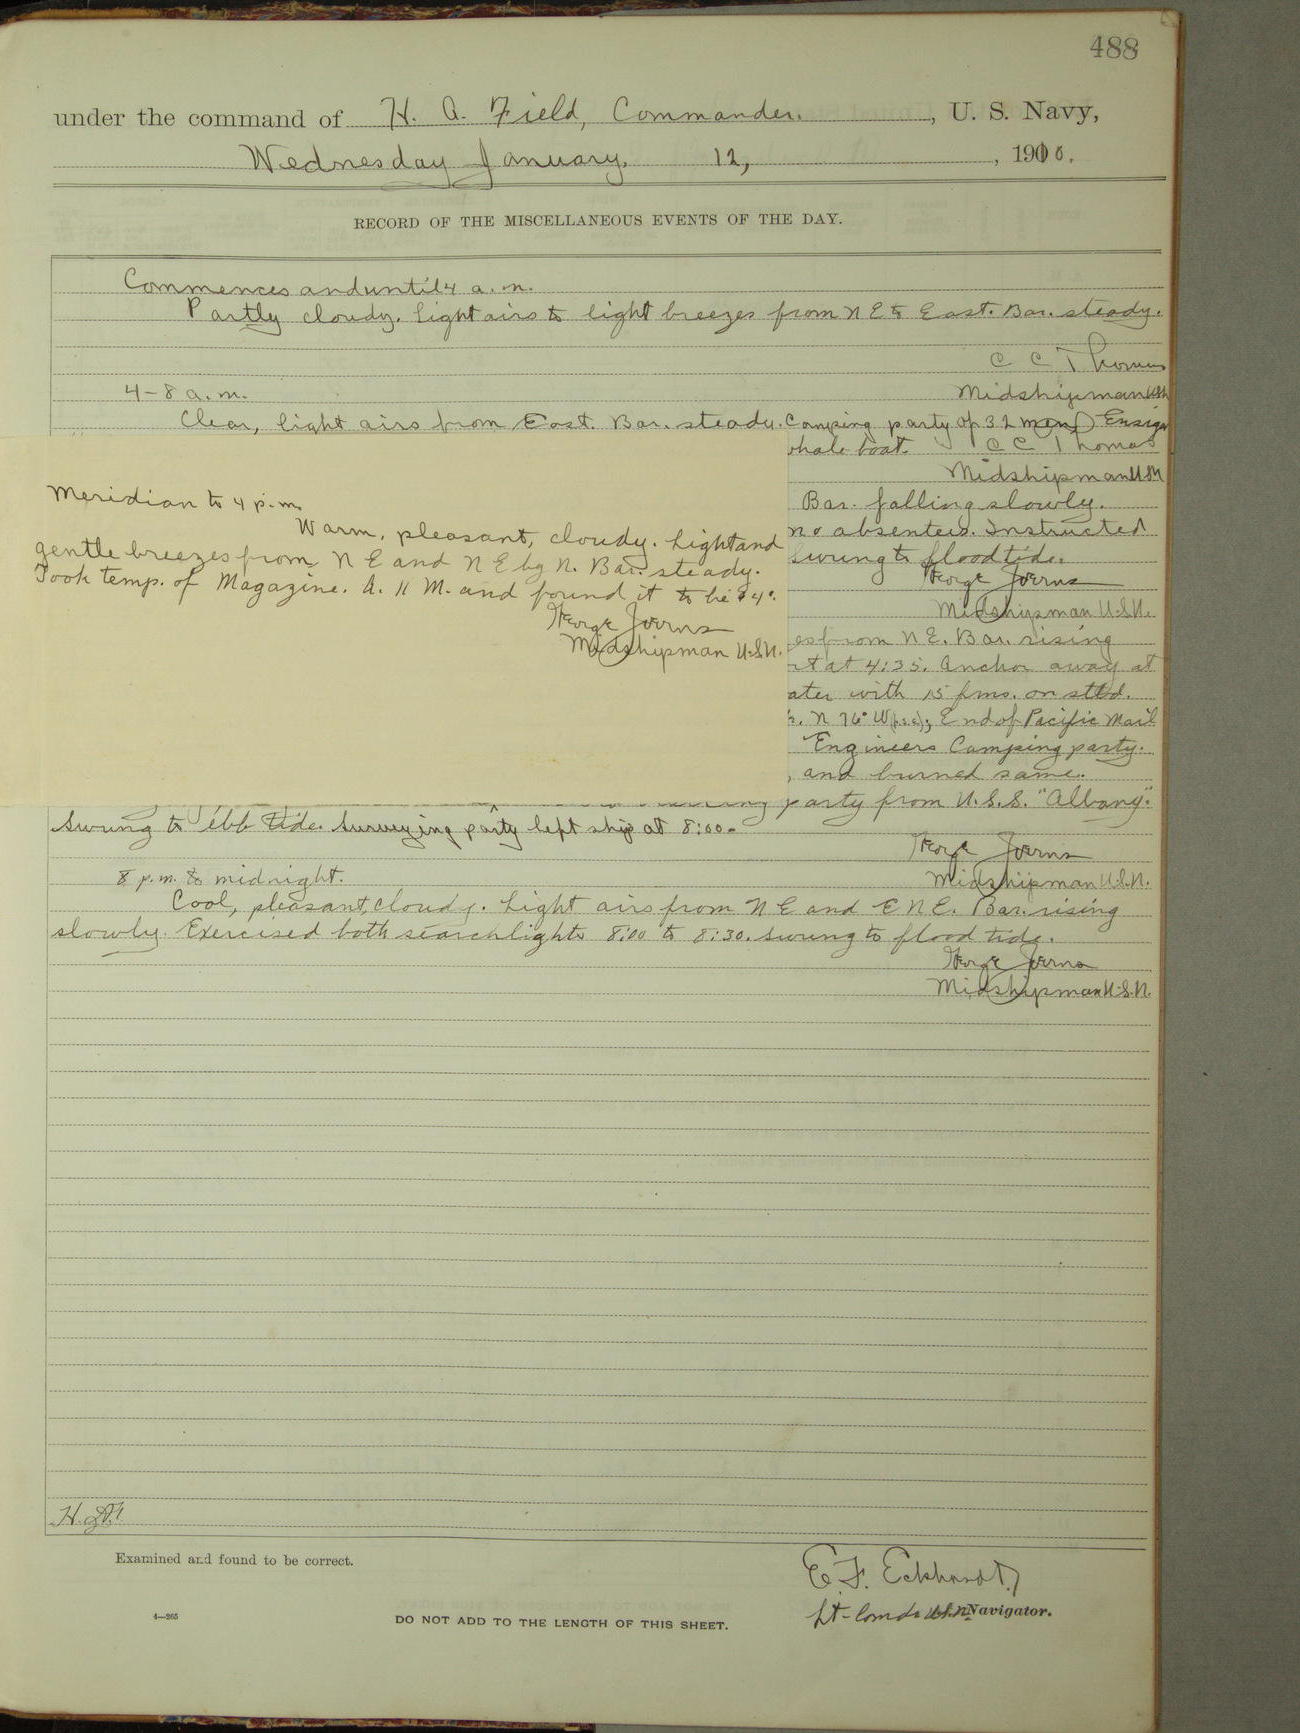 488
under the command of H. A. Field, Commander. , U. S. Navy,
Wednesday January, 12, , 1910.
RECORD OF THE MISCELLANEOUS EVENTS OF THE DAY.
Commences and until 4 a. m.
Partly cloudy. Light airs to light breezes from NE to East. Bar. steady.
C C Thomas
4-8 a.m. Midshipman USN
Clear, light airs from East. Bar. steady. Camping party of 32 men Ensign
whale boat. C C Thomas
Midshipman USN
Bar. falling slowly.
no absentees. Instructed
Swung to flood tide.
George Joerns
Midshipman U.S.N.
es from NE. Bar. rising
rt at 4:35. Anchor away at
ater with 15 fms. on stbd.
N 76° W (p.s.c.); End of Pacific Mail
Engineers Camping party.
, and burned same.
Meridian to 4 p.m.
Warm, pleasant, cloudy. Light and
gentle breezes from NE and NE by N. Bar. steady.
Took temp. of Magazine. A. 11 M. and found it to be 84°.
George Joerns
Midshipman U.S.N.
party from U.S.S. "Albany".
Swung to ebb tide. Surveying party left ship at 8:00.
George Joerns
8 p.m. to midnight. Midshipman U.S.N.
Cool, pleasant, cloudy. Light airs from NE and ENE. Bar. rising
slowly. Exercised both searchlights 8:00 to 8:30. Swung to flood tide.
George Joerns
Midshipman U.S.N.
Examined and found to be correct.
E. F. Eckhardt,
Lt-Comdr U.S.N. Navigator.
4—265
DO NOT ADD TO THE LENGTH OF THIS SHEET.